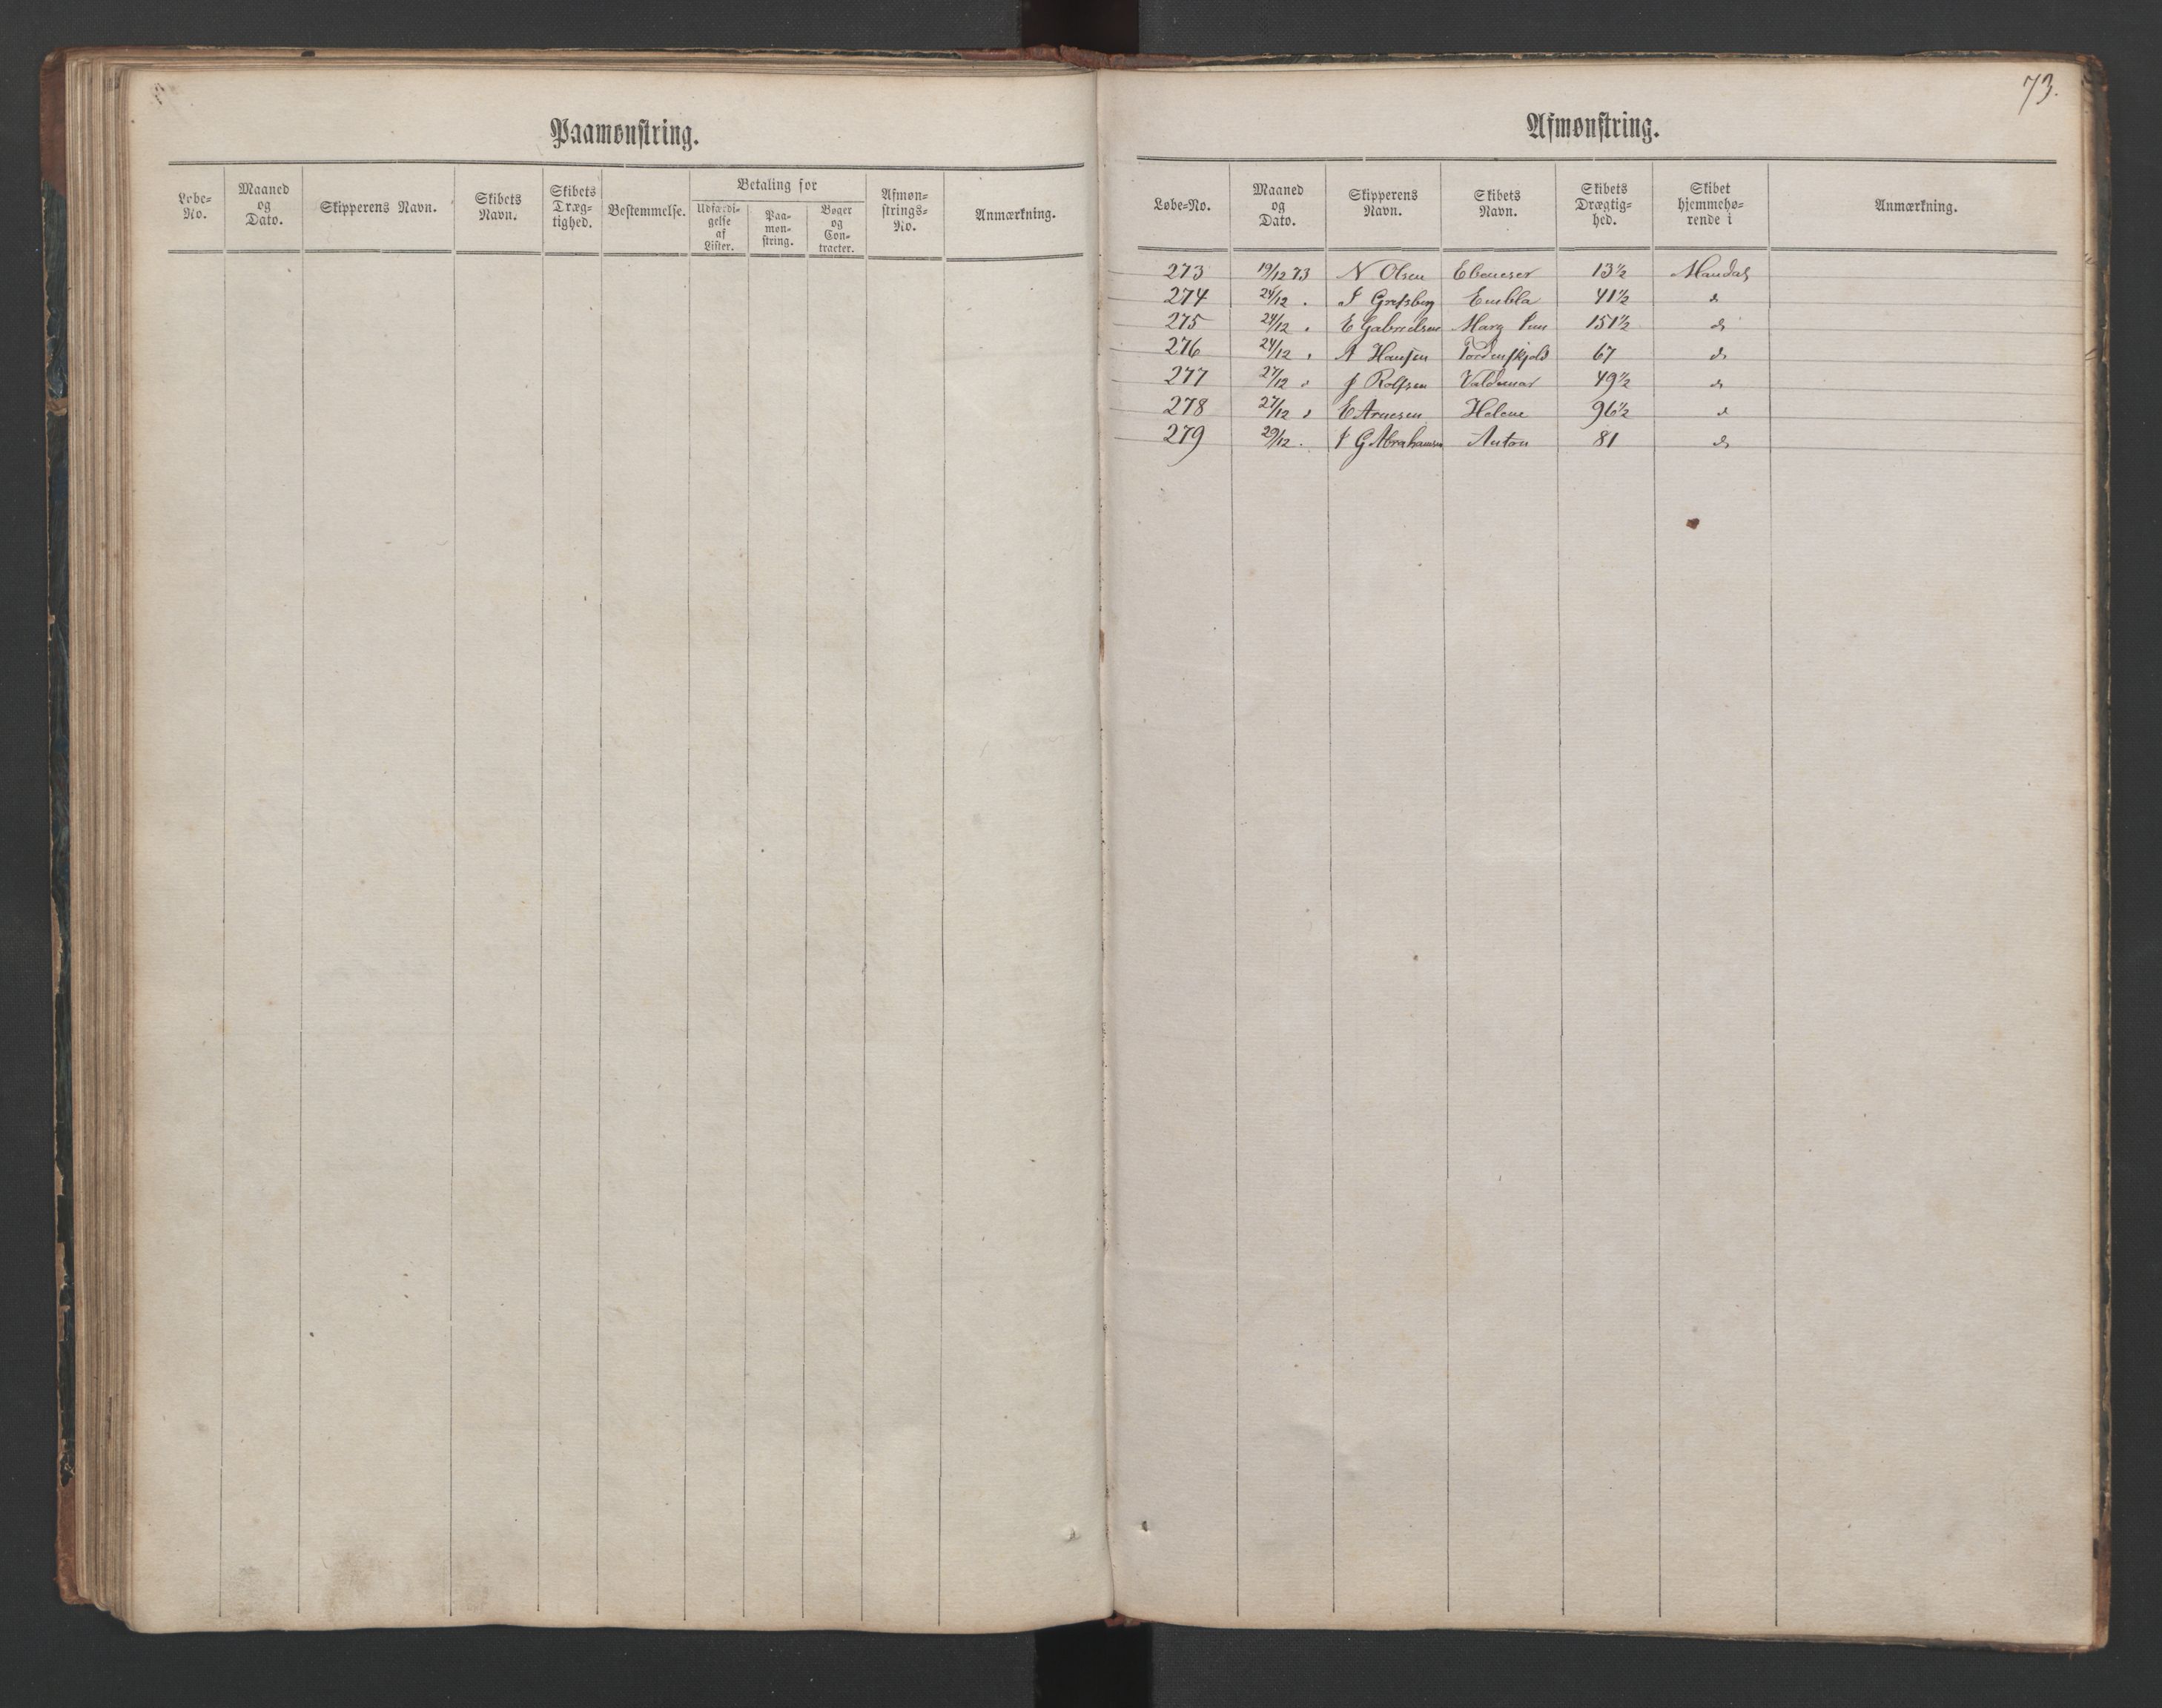 Paamønstring.
Løbe-No.
Maaned og Dato.
Skipperens Navn.
Skibets Navn.
Skibets Dræg-tighed.
Bestemmelse.
Betaling for
Udfærdi-gelse af Lister.
Paa-møn-string.
Bøger og Con-tracter.
Afmøn-strings-No.
Anmærkning.
73.
Afmønstring.
Løbe-No.
Maaned og Dato.
Skipperens Navn.
Skibets Navn.
Skibets Drægtig-hed.
Skibet hjemmehø-rende i
Anmærkning.
273 19/12 73 N Olsen Ebeneser 13½ Mandal
274 24/12 . Embla 41½ do
275 24/12 . E Gabrielsen Marg 151½ do
276 24/12 . A Hansen Tordenskjold 67 do
277 27/12 . J Rolfsen Valdemar 49½ do
278 27/12 . E Arnesen Helene 96½ do
279 29/12 . G Abrahamsen Anton 81 do